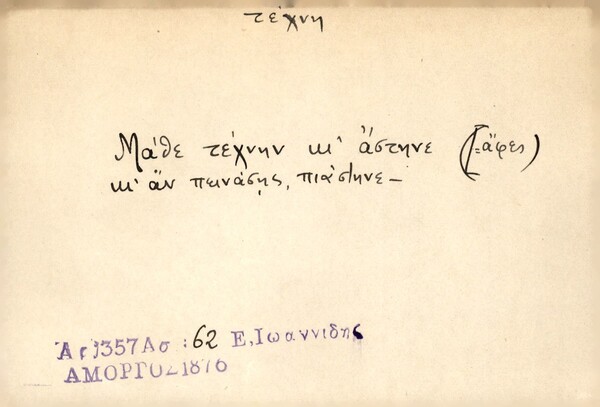 τέχνη
Μάθε τέχνην κι' ἄστηνε (=ἄφες)
κι' ἄν πεινάσῃς, πιάστηνε –
Ἀρ 1357 Ασ : 62 Ε, Ιωαννιδης
ΑΜΟΡΓΟΣ 1876